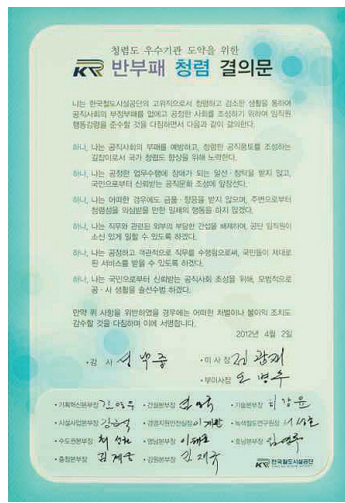 청렴도 우수기관 도약을 위한
KR 반부패 청렴 결의문
나는 한국철도시설공단의 고위직으로서 청렴하고 검소한 생활을 통하여
공직사회의 부정부패를 없애고 공정한 사회를 조성하기 위하여 임직원
행동강령을 준수할 것을 다짐하면서 다음과 같이 결의한다.
하나, 나는 공직사회의 부패를 예방하고, 청렴한 공직풍토를 조성하는
길잡이로서 국가 청렴도 향상을 위해 노력한다.
하나, 나는 공정한 업무수행에 장애가 되는 알선·청탁을 받지 않고,
국민으로부터 신뢰받는 공직문화 조성에 앞장선다.
하나, 나는 어떠한 경우에도 금품·향응을 받지 않으며, 주변으로부터
청렴성을 의심받을 만한 일체의 행동을 하지 않겠다.
하나, 나는 직무와 관련된 외부의 부당한 간섭을 배제하며, 공단 임직원이
소신 있게 일할 수 있도록 하겠다.
하나, 나는 공정하고 객관적으로 직무를 수행함으로써, 국민들이 제대로
된 서비스를 받을 수 있도록 하겠다.
하나, 나는 국민으로부터 신뢰받는 공직사회 조성을 위해, 모범적으로
공·사 생활을 솔선수범 하겠다.
만약 위 사항을 위반하였을 경우에는 어떠한 처벌이나 불이익 조치도
감수할 것을 다짐하며 이에 서명합니다.
2012년 4월 2일
·감 사 ·이 사 장 김광재
·부이사장 오병수
·기획혁신본부장 ·건설본부장 ·기술본부장
·시설사업본부장 ·경영지원안전실장 ·녹색철도연구원장
·수도권본부장 ·영남본부장 ·호남본부장
·충청본부장 ·강원본부장
KR 한국철도시설공단